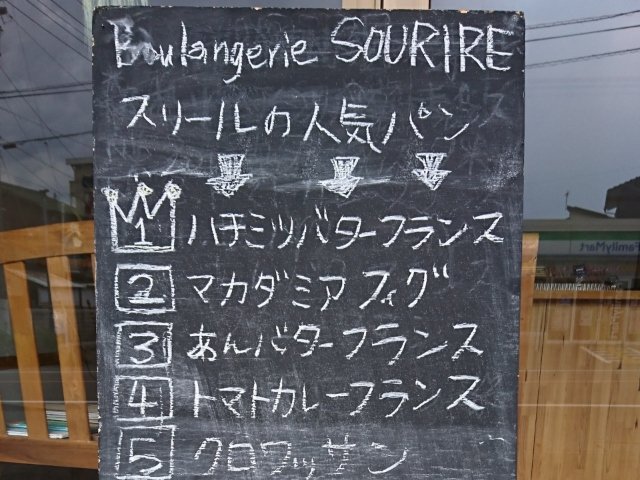 Boulangerie SOURIRE
スリールの人気パン
1 ハチミツバターフランス
2 マカダミアフィグ
3 あんバターフランス
4 トマトカレーフランス
5 クロワッサン
FamilyMart